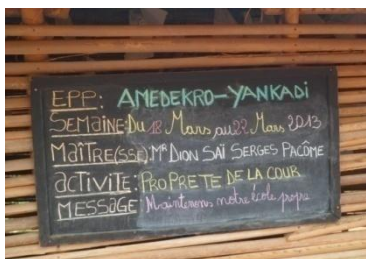 EPP: AMEDEKRO-YANKADi
SEMaiNE: Du 18 Mars au 22 Mars 2013
MaîTRE(SSE): MR DION SAÏ SERGES PACÔME
aCTiViTE: PROPRETE DE LA COUR
MESSAGE: Maintenons notre école propre